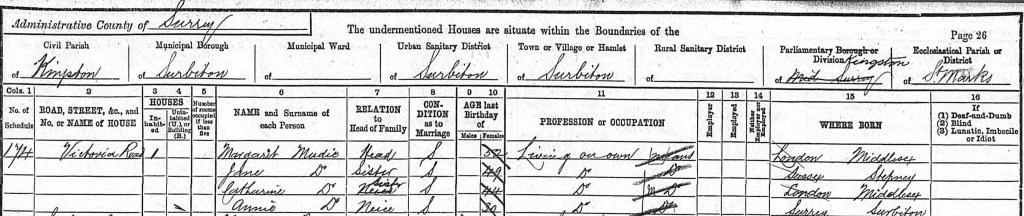 Administrative County of Surrey
The undermentioned Houses are situate within the Boundaries of the
Page 26
Civil Parish
of Kingston
Municipal Borough
of Surbiton
Municipal Ward
of
Urban Sanitary District
of Surbiton
Town or Village or Hamlet
of Surbiton
Rural Sanitary District
of
Parliamentary Borough or
Division Kingston
of Mid Surrey
Ecclesiastical Parish or
District
of St Marks
Cols. 1 2 3 4 5 6 7 8 9 10 11 12 13 14 15 16
No. of
Schedule
ROAD, STREET, &c., and
No. or NAME of HOUSE
HOUSES
In-
habit-
ed
Unin-
habited
(U.), or
Building
(B.)
Number
of rooms
occupied
if less
than five
NAME and Surname of
each Person
RELATION
to
Head of Family
CON-
DITION
as to
Marriage
AGE last
Birthday
of
Males Females
PROFESSION or OCCUPATION
Employer
Employed
Neither
Employer nor
Employed
WHERE BORN
If
(1) Deaf-and-Dumb
(2) Blind
(3) Lunatic, Imbecile
or Idiot
174 Victoria Road 1 Margaret Mudie Head S 52 Living on own means London Middlesex
Jane Do Sister S 49 Do Do Sussex Stepney
Sister
Catharine Do Neice S 44 Do Do London Middlesex
Annie Do Neice S Do Do Surrey Surbiton